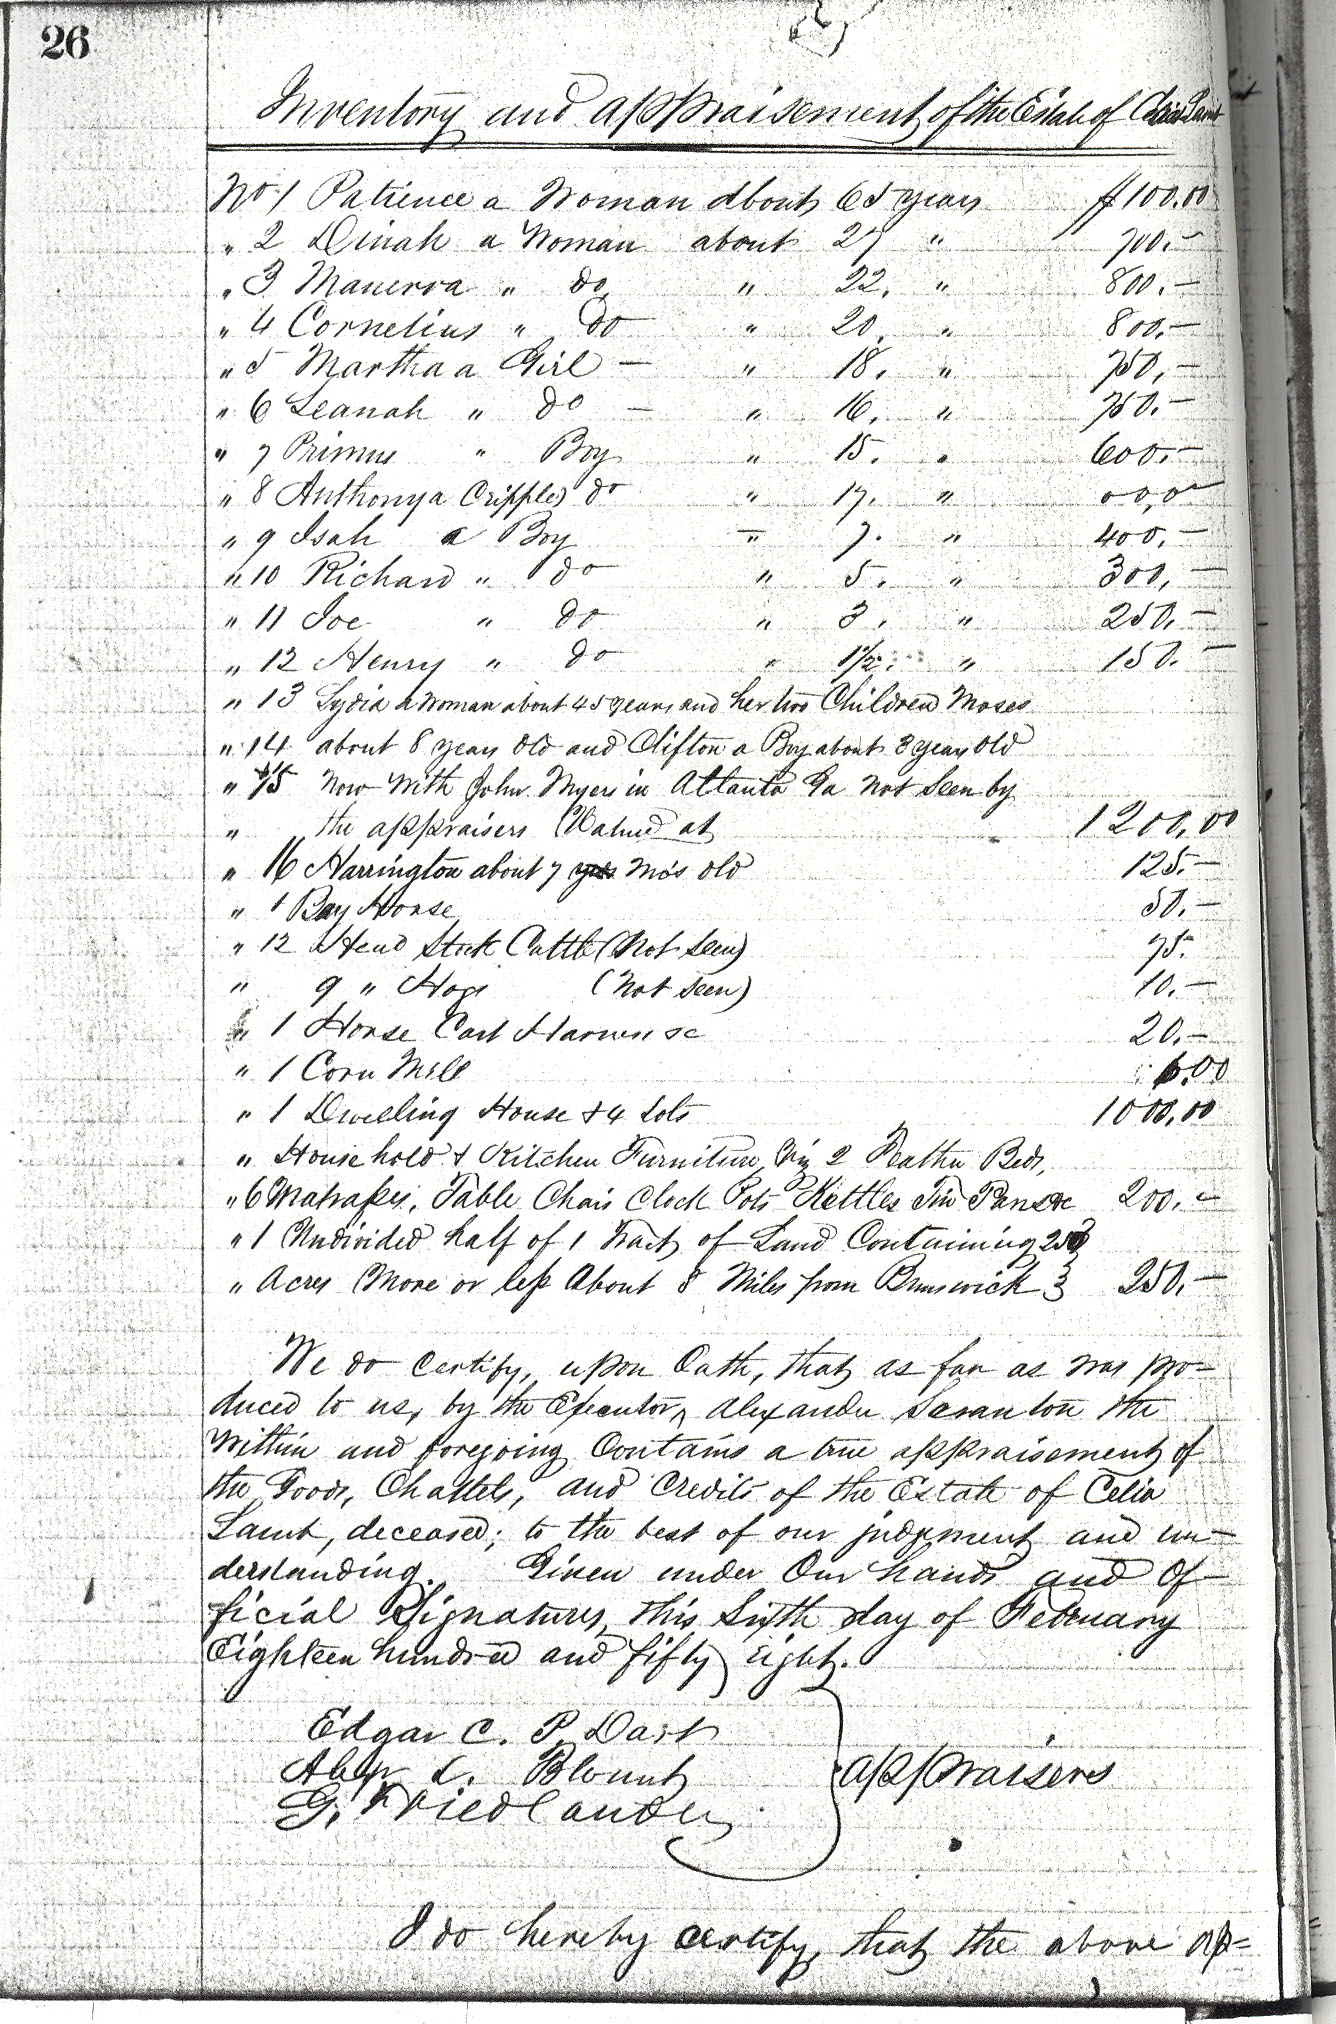 26
Inventory and appraisement of the Estate of Celia Lamb
No 1 Patience a Woman about 65 years $100.00
" 2 Dinah a Woman about 27 " 700.-
" 3 Manerva " do " 22. " 800.-
" 4 Cornelius " do " 20. " 800.-
" 5 Martha a Girl - " 18. " 750.-
" 6 Leanah " do - " 16. " 750.-
" 7 Primus " Boy " 15. " 600.-
" 8 Anthony a Cripple do " 17. " 00,0-
" 9 Isah a Boy " 7. " 400.-
" 10 Richard " do " 5. " 300.-
" 11 Joe " do " 3. " 250.-
" 12 Henry " do " 1 1/2. " 150.-
" 13 Lydia a woman about 45 years and her two Children Moses
" 14 about 8 years old and Clifton a Boy about 3 years old
" 15 now with John Myers in Atlanta Ga not seen by
" the appraisers Valued at 1200.00
" 16 Harrington about 7 yrs mo's old 125.-
" 1 Bay Horse 50.-
" 12 Head Stock Cattle (not seen) 75.
" 9 " Hogs (not seen) 10.-
" 1 Horse Cart Harness &c 20.-
" 1 Corn Mill 6.00
" 1 Dwelling House & 4 Lots 1000.00
" Household & Kitchen Furniture, Viz 2 Feather Beds,
" 6 Matrasses, Table Chais Clock Pots Kettles Tin Pans &c 200.-
" 1 Undivided half of 1 Tract of Land Containing 250 }
" Acres more or less About 8 Miles from Brunswick } 250.-
We do certify, upon Oath, that as far as was pro=
duced to us, by the Executor, Alexander Scranton the
within and foregoing Contains a true appraisement of
the Goods, Chattels, and Credits of the Estate of Celia
Lamb, deceased; to the best of our judgement and un-
derstanding. Given under Our hands and Of-
ficial Signatures, this Sixth day of February
Eighteen hundred and fifty eight.
Edgar C. P. Dart
Alexr L. Blount
G. Friedlander
appraisers
I do hereby certify, that the above ap=